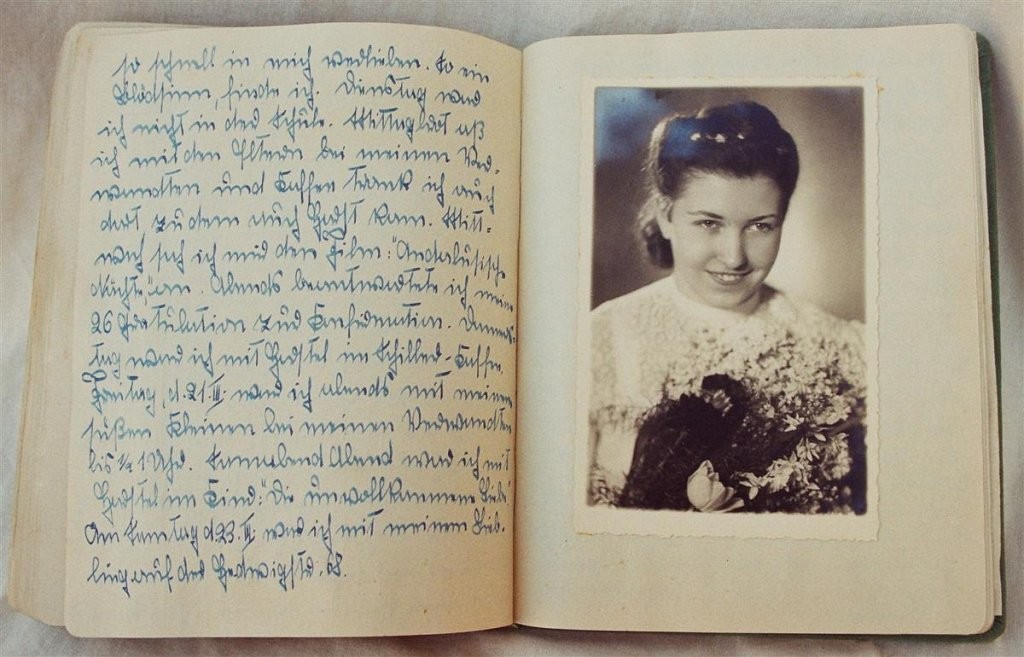 so schnell in mich verlieben. So ein
Blödsinn, finde ich. Dienstag war
ich nicht in der Schule. Mittagbrot aß
ich mit den Eltern bei meinen Ver-
wandten und Kaffee trank ich auch
dort, zu dem auch Horst kam. Mitt-
woch sah ich mir den Film: "Andalusische
Nächte," an. Abends beantwortete ich meine
26 Gratulation zur Konfirmation. Donners-
tag war ich mit Horstel im Schiller-Kaffee.
Freitag, d. 21. III. war ich abends mit meinem
süßen Kleinen bei meinen Verwandten
bis ½ 1 Uhr. Sonnabend Abend war ich mit
Horstel im Kino: "Die unvollkommene Liebe"
Am Sonntag d. 23. III. war ich mit meinem Lieb-
ling auf der Hedwigstr. 68.